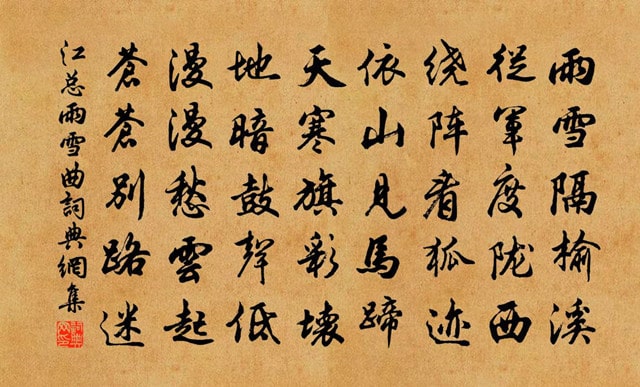 雨雪隔榆溪
從軍度陇西
绕阵看狐迹
依山見馬蹄
天寒旗彩壞
地暗鼓聲低
漫漫愁雲起
蒼蒼別路迷
江总雨雪曲詞典網集